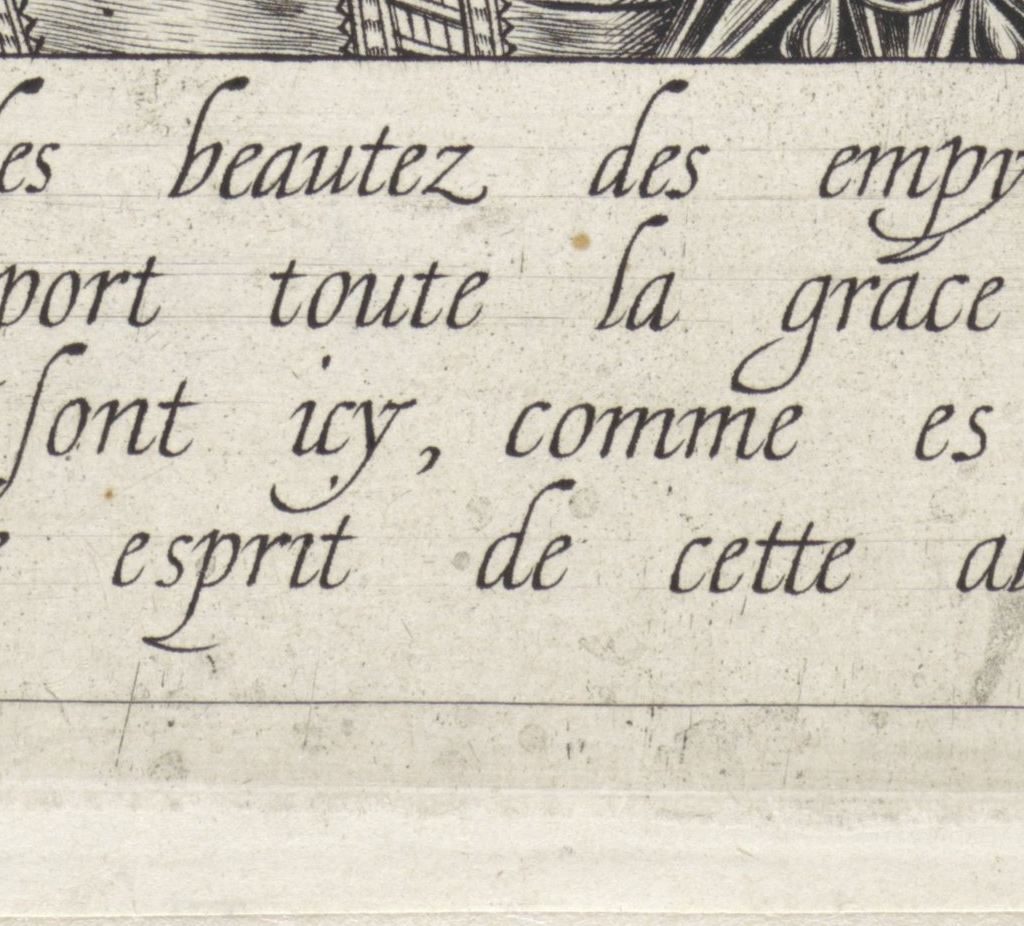 es beautez des empy
port toute la grace
ſont icy, comme es
e esprit de cette al